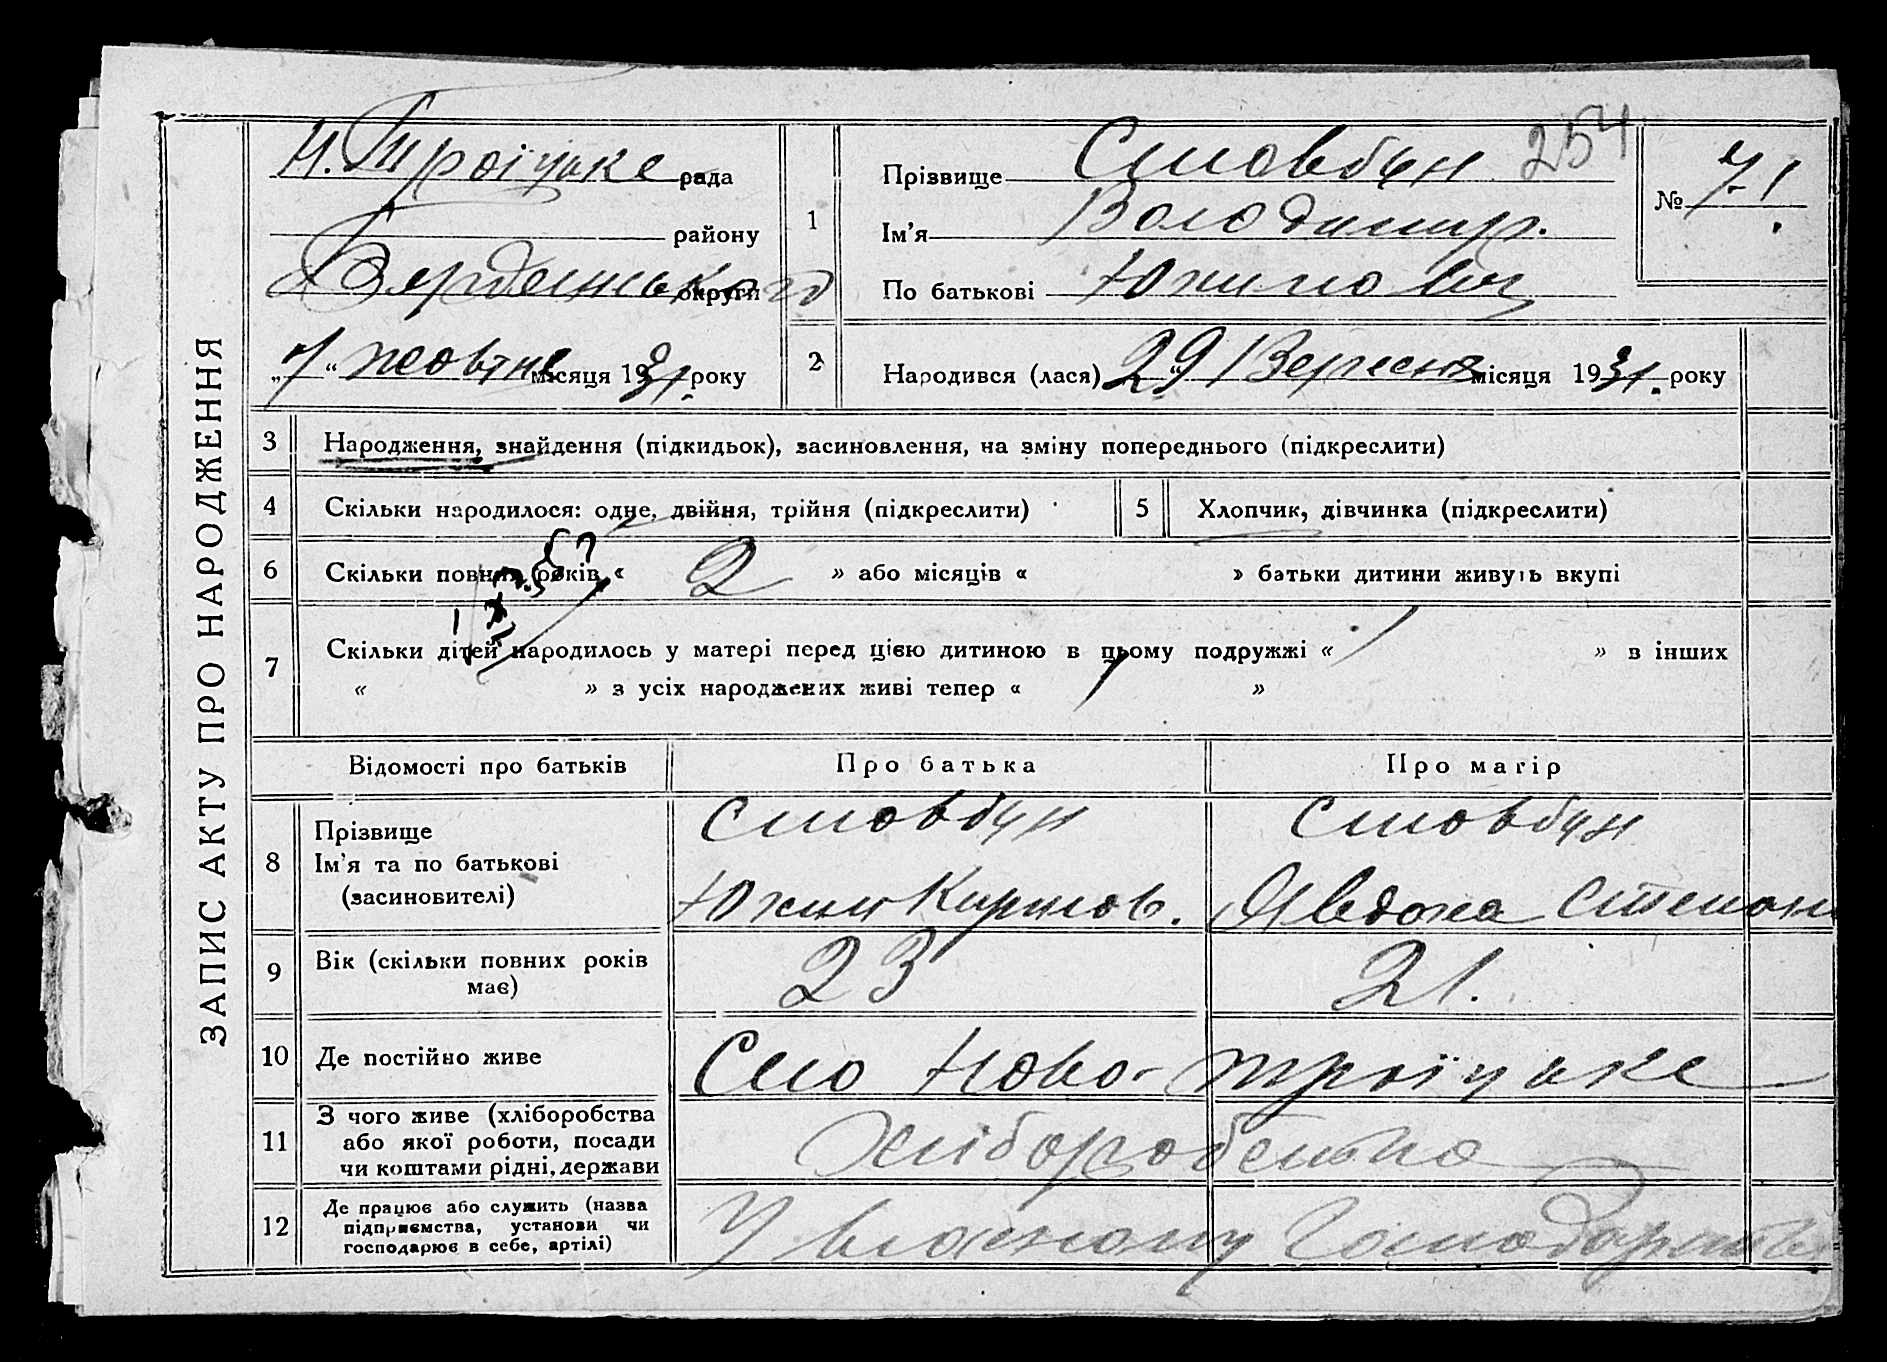 ЗАПИС АКТУ ПРО НАРОДЖЕННЯ
254
Н. Троїцьке рада
району
Бердянського округи
„7“ жовтня місяця 1931 року
1
Прізвище Стовбун
Ім'я Володимир.
По батькові Юхимович
№ 71.
2
Народився (лася) 29 Вересня місяця 1931. року
3 Народження, знайдення (підкидьок), засиновлення, на зміну попереднього (підкреслити)
4 Скільки народилося: одне, двійня, трійня (підкреслити)
5 Хлопчик, дівчинка (підкреслити)
6 Скільки повних років « 2 » або місяців « » батьки дитини живуть вкупі
7 Скільки дітей народилось у матері перед цією дитиною в цьому подружжі « 1 » в інших
« » з усіх народжених живі тепер « 1 »
Відомості про батьків Про батька Про матір
8 Прізвище
Ім'я та по батькові
(засиновителі)
Стовбун
Юхим Кирилов.
Стовбун
Явдоха Степан
9 Вік (скільки повних років
має)
23
21.
10 Де постійно живе
Село Ново-Троїцьке
11 З чого живе (хліборобства
або якої роботи, посади
чи коштами рідні, держави
Хліборобства
12 Де працює або служить (назва
підприємства, установи чи
господарює в себе, артілі)
У власному господарстві